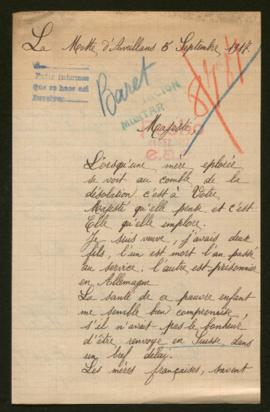 La Motte d'Aveillans 5 Septembre 1917
Baret
MILITAR
Majesté
Lorsqu'une mère eplorée
se voit au comble de la
désolation c'est à Votre
Majesté qu'elle pense et c'est
Elle qu'elle emplore.
Je suis veuve, j'avais deux
fils, l'un est mort l'an passé
au service, l'autre est prisonnier
en Allemagne
La santé de ce pauvre enfant
me semble bien compromise
s'il n'avait pas le bonheur
d'être renvoyé en Suisse dans
un bref délai.
Les mères françaises, savent